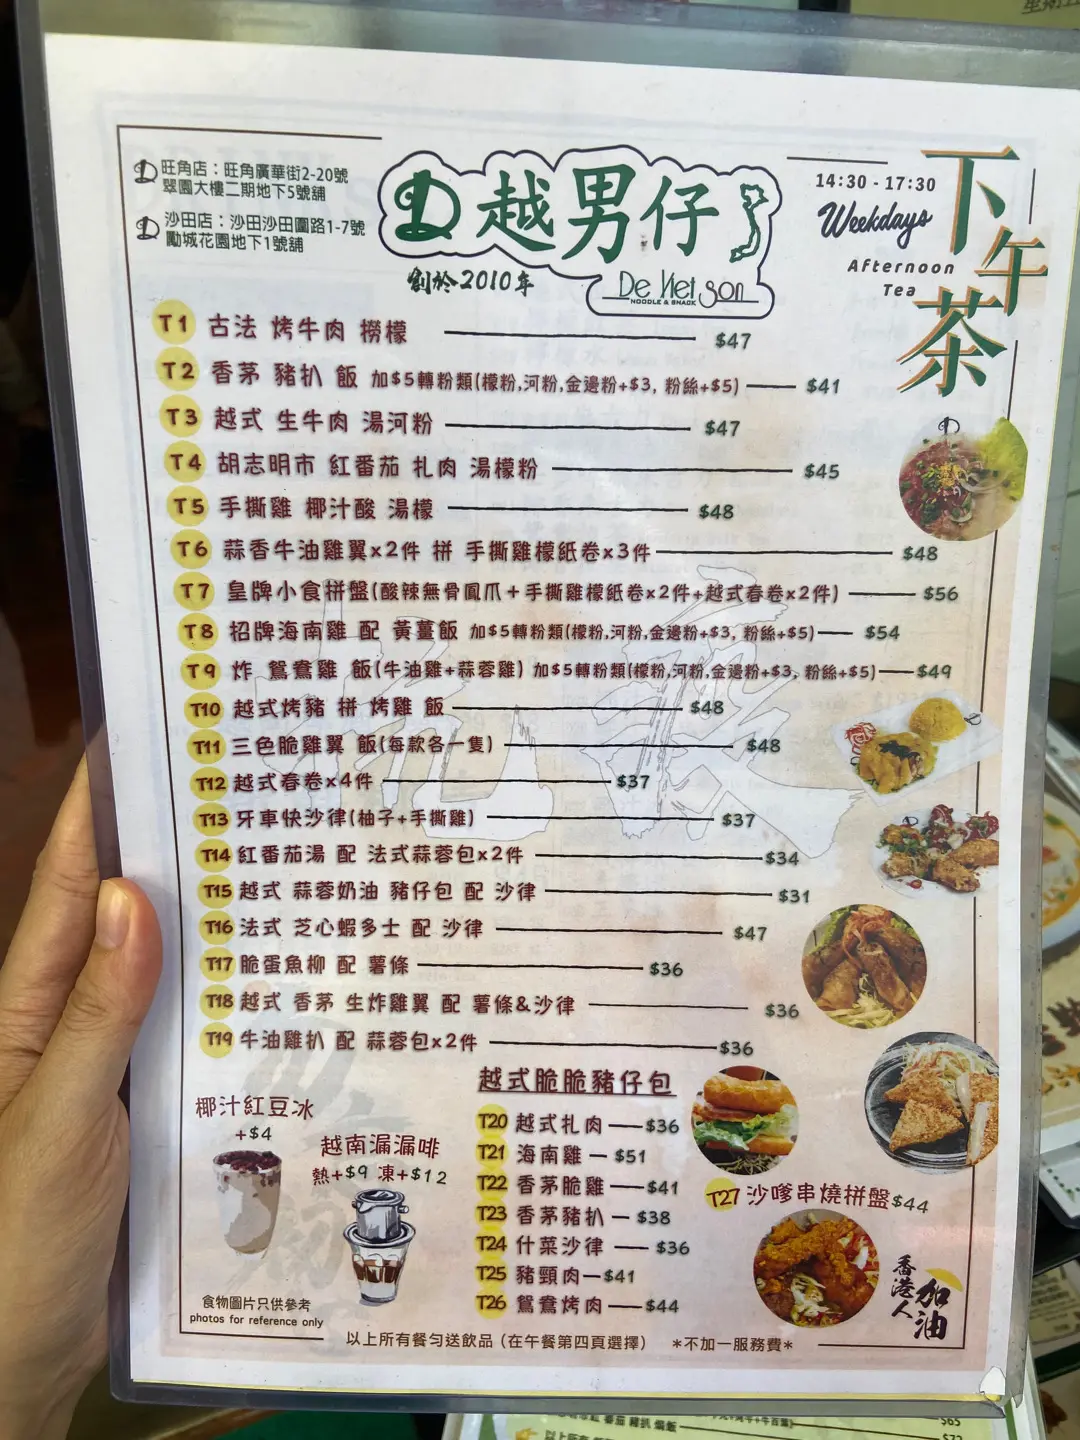 旺角店：旺角廣華街2-20號
翠園大樓二期地下5號舖
沙田店：沙田沙田圍路1-7號
勵城花園地下1號舖
D 越男仔
創於2010年
De Viet Son
NOODLE & SNACK
14:30 - 17:30
Weekdays
Afternoon
Tea
下午茶
T1 古法 烤牛肉 撈檬 $47
T2 香茅 豬扒 飯 加$5轉粉類(檬粉,河粉,金邊粉+$3, 粉絲+$5) $41
T3 越式 生牛肉 湯河粉 $47
T4 胡志明市 紅番茄 扎肉 湯檬粉 $45
T5 手撕雞 椰汁酸 湯檬 $48
T6 蒜香牛油雞翼x2件 拼 手撕雞檬紙卷x3件 $48
T7 皇牌小食拼盤(酸辣無骨鳳爪+手撕雞檬紙卷x2件+越式春卷x2件) $56
T8 招牌海南雞 配 黃薑飯 加$5轉粉類(檬粉,河粉,金邊粉+$3, 粉絲+$5) $54
T9 炸 鴛鴦雞 飯(牛油雞+蒜蓉雞) 加$5轉粉類(檬粉,河粉,金邊粉+$3, 粉絲+$5) $49
T10 越式烤豬 拼 烤雞 飯 $48
T11 三色脆雞翼 飯(每款各一隻) $48
T12 越式春卷x4件 $37
T13 牙車快沙律(柚子+手撕雞) $37
T14 紅番茄湯 配 法式蒜蓉包x2件 $34
T15 越式 蒜蓉奶油 豬仔包 配 沙律 $31
T16 法式 芝心蝦多士 配 沙律 $47
T17 脆蛋魚柳 配 薯條 $36
T18 越式 香茅 生炸雞翼 配 薯條&沙律 $36
T19 牛油雞扒 配 蒜蓉包x2件 $36
椰汁紅豆冰
+$4
越南漏漏啡
熱+$9 凍+$12
越式脆脆豬仔包
T20 越式扎肉 $36
T21 海南雞 $51
T22 香茅脆雞 $41
T23 香茅豬扒 $38
T24 什菜沙律 $36
T25 豬頸肉 $41
T26 鴛鴦烤肉 $44
T27 沙嗲串燒拼盤 $44
香港人
加油
食物圖片只供參考
photos for reference only
以上所有餐勻送飲品 (在午餐第四頁選擇) *不加一服務費*
$65
以上所有
$72